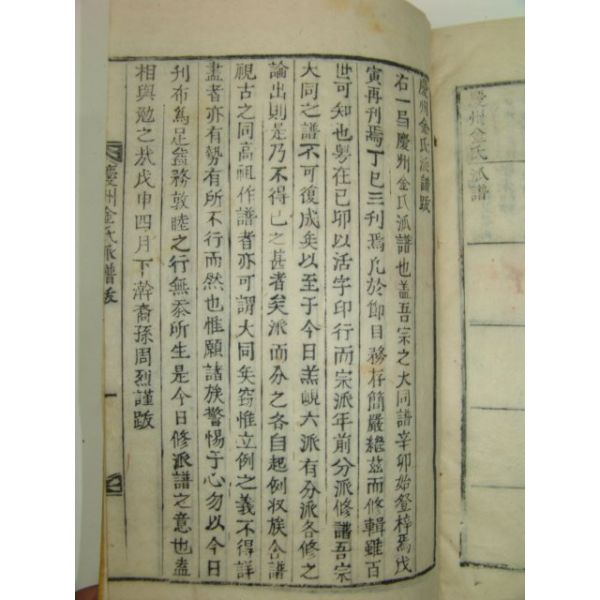 慶州金氏派譜
慶州金氏派譜跋
右一弓慶州金氏派譜也盖吾宗之大同譜辛卯始登梓焉戊
寅再刊焉丁巳三刊焉凡於節目務存簡嚴繼玆而修輯雖百
世可知也粤在己卯以活字印行而宗派年前分派修譜吾宗
大同之譜不可復成矣以至于今日羔峴六派有分派各修之
論出則是乃不得已之甚者矣派而分之各自起例収族合譜
視古之同高祖作譜者亦可謂大同矣窃惟立例之義不得詳
盡者亦有勢有所不行而然也惟願諸族警惕于心勿以今日
刋布爲足益務敦睦之行無忝所生是今日修派譜之意也盍
相與勉之㢤戊申四月下澣裔孫周烈謹跋
慶州金氏派譜跋
一